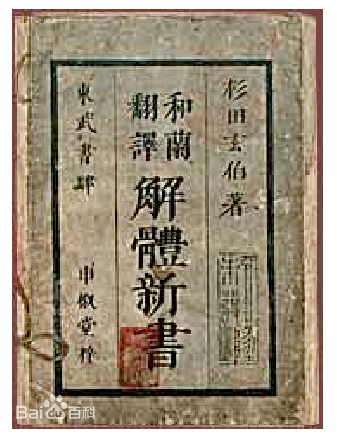 杉田玄伯著
和蘭
翻譯
解體新書
東武書肆 申椒堂梓
Bai百科